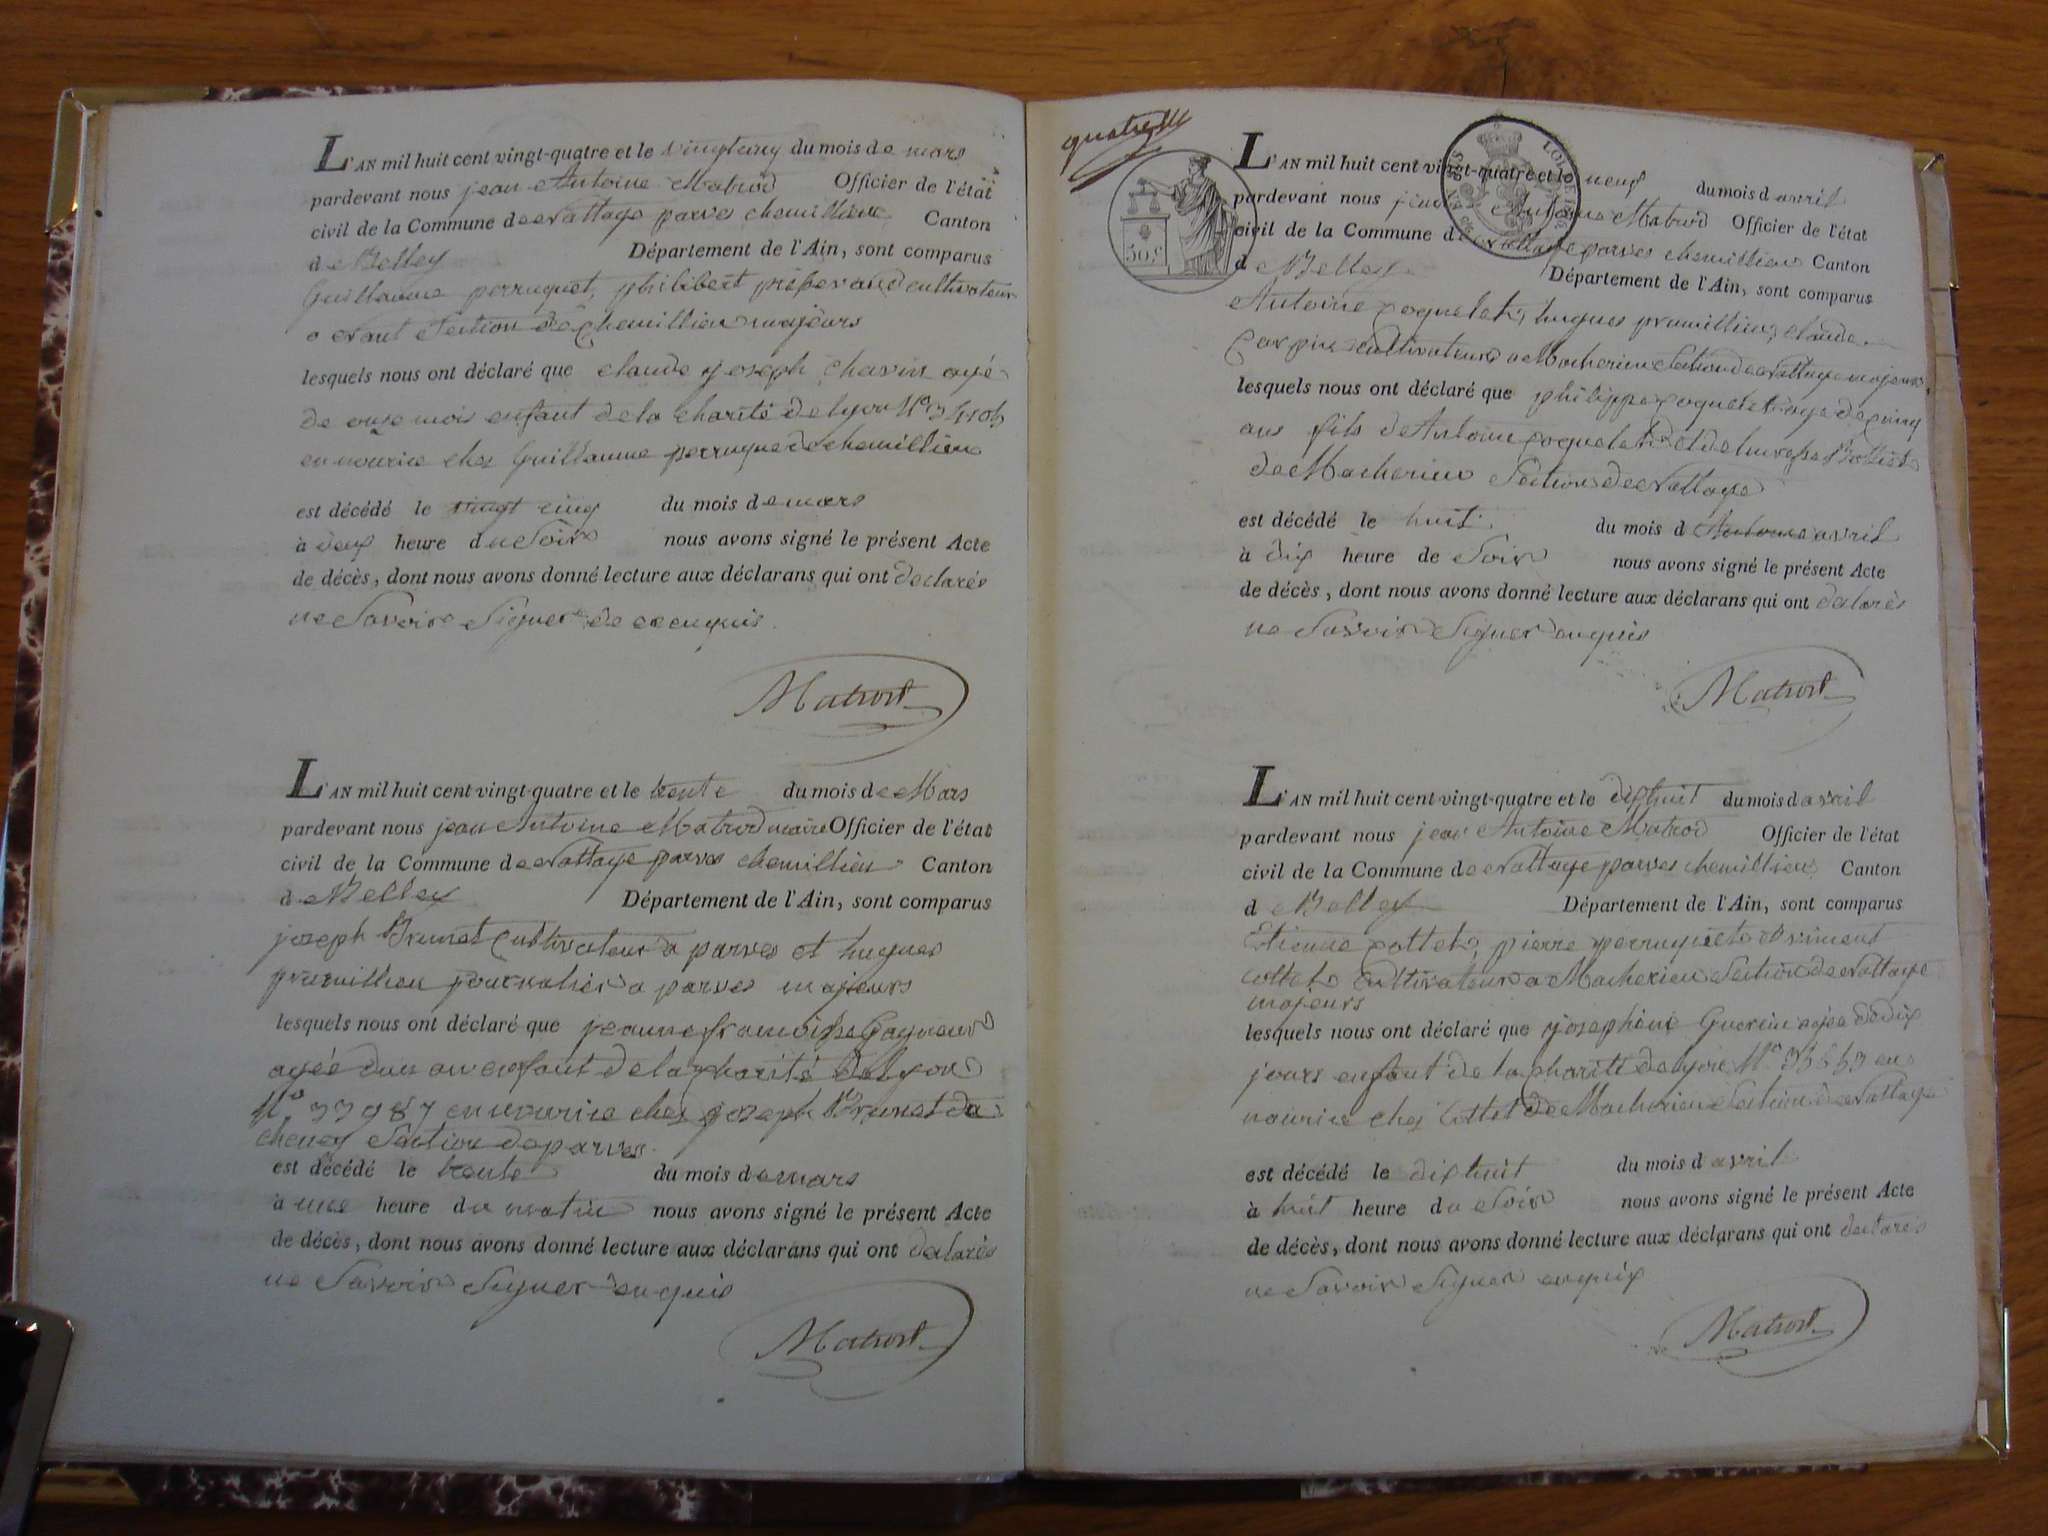 L'AN mil huit cent vingt-quatre et le vingt cinq du mois de mars
pardevant nous jean Antoine Matrod Officier de l'état
civil de la Commune de Nattage parves chemillieu Canton
de Belley Département de l'Ain, sont comparus
Guillaume perruquet, philibert cultivateur
a section de chemillieu majeurs
lesquels nous ont déclaré que claude joseph chavin agé
de onze mois enfant de la charité de lyon N°
en nourice chez Guillaume perruquet de chemillieu
est décédé le vingt cinq du mois de mars
à deux heure du Soir nous avons signé le présent Acte
de décès, dont nous avons donné lecture aux déclarans qui ont declarés
ne Savoir Signer de ce enquis.
Matrod
L'AN mil huit cent vingt-quatre et le trente du mois de Mars
pardevant nous jean Antoine Matrod maire Officier de l'état
civil de la Commune de Nattage parves chemillieu Canton
de Belley Département de l'Ain, sont comparus
joseph Brunet Cultivateur a parves et hugues
prumillieu journalier a parves majeurs
lesquels nous ont déclaré que jeanne francoise
agée dun an enfant de la charité de lyon
N° 33987 en nourice chez joseph Brunet de
Section de parves
est décédé le trente du mois de mars
à une heure du matin nous avons signé le présent Acte
de décès, dont nous avons donné lecture aux déclarans qui ont declarés
ne Savoir Signer enquis
Matrod
quatre
50 C
LOI DE 1816
L'AN mil huit cent vingt-quatre et le neuf du mois d avril
pardevant nous jean Antoine Matrod Officier de l'état
civil de la Commune de Nattage parves chemillieu Canton
de Belley Département de l'Ain, sont comparus
Antoine coquelet, hugues prumillieu, claude
cultivateurs a Macherieu Section de Nattage majeurs
lesquels nous ont déclaré que philippe coquelet agé de cinq
ans fils de Antoine coquelet et de
de Macherieu Section de Nattage
est décédé le huit du mois d avril
à dix heure de Soir nous avons signé le présent Acte
de décès, dont nous avons donné lecture aux déclarans qui ont declarés
ne Savoir Signer enquis
Matrod
L'AN mil huit cent vingt-quatre et le dixhuit du mois d avril
pardevant nous jean Antoine Matrod Officier de l'état
civil de la Commune de Nattage parves chemillieu Canton
de Belley Département de l'Ain, sont comparus
Etienne cottet, pierre perruquet et
cottet cultivateurs a Macherieu Section de Nattage
majeurs
lesquels nous ont déclaré que josephine Guerin agée de dix
jours enfant de la charité de lyon N° en
nourice chez Cottet de Macherieu Section de Nattage
est décédé le dixhuit du mois d avril
à huit heure du Soir nous avons signé le présent Acte
de décès, dont nous avons donné lecture aux déclarans qui ont declarés
ne Savoir Signer enquis
Matrod